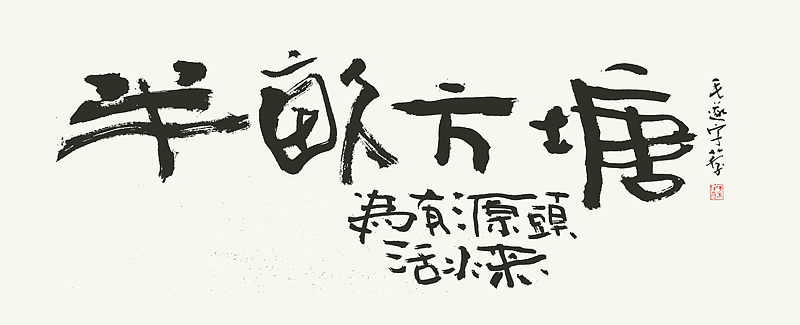 半畝方塘
為有源頭
活水來